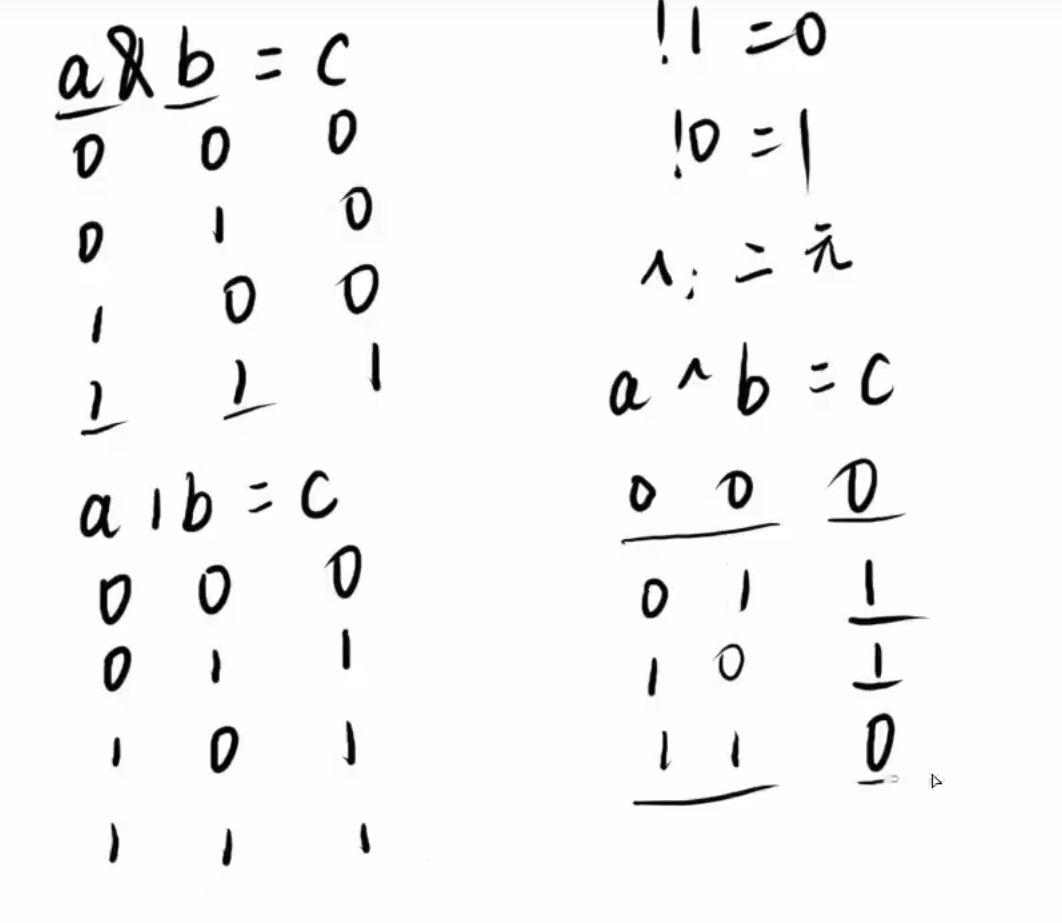 a & b = c
0 0 0
0 1 0
1 0 0
1 1 1
a | b = c
0 0 0
0 1 1
1 0 1
1 1 1
!1 = 0
!0 = 1
^ : 二元
a ^ b = c
0 0 0
0 1 1
1 0 1
1 1 0